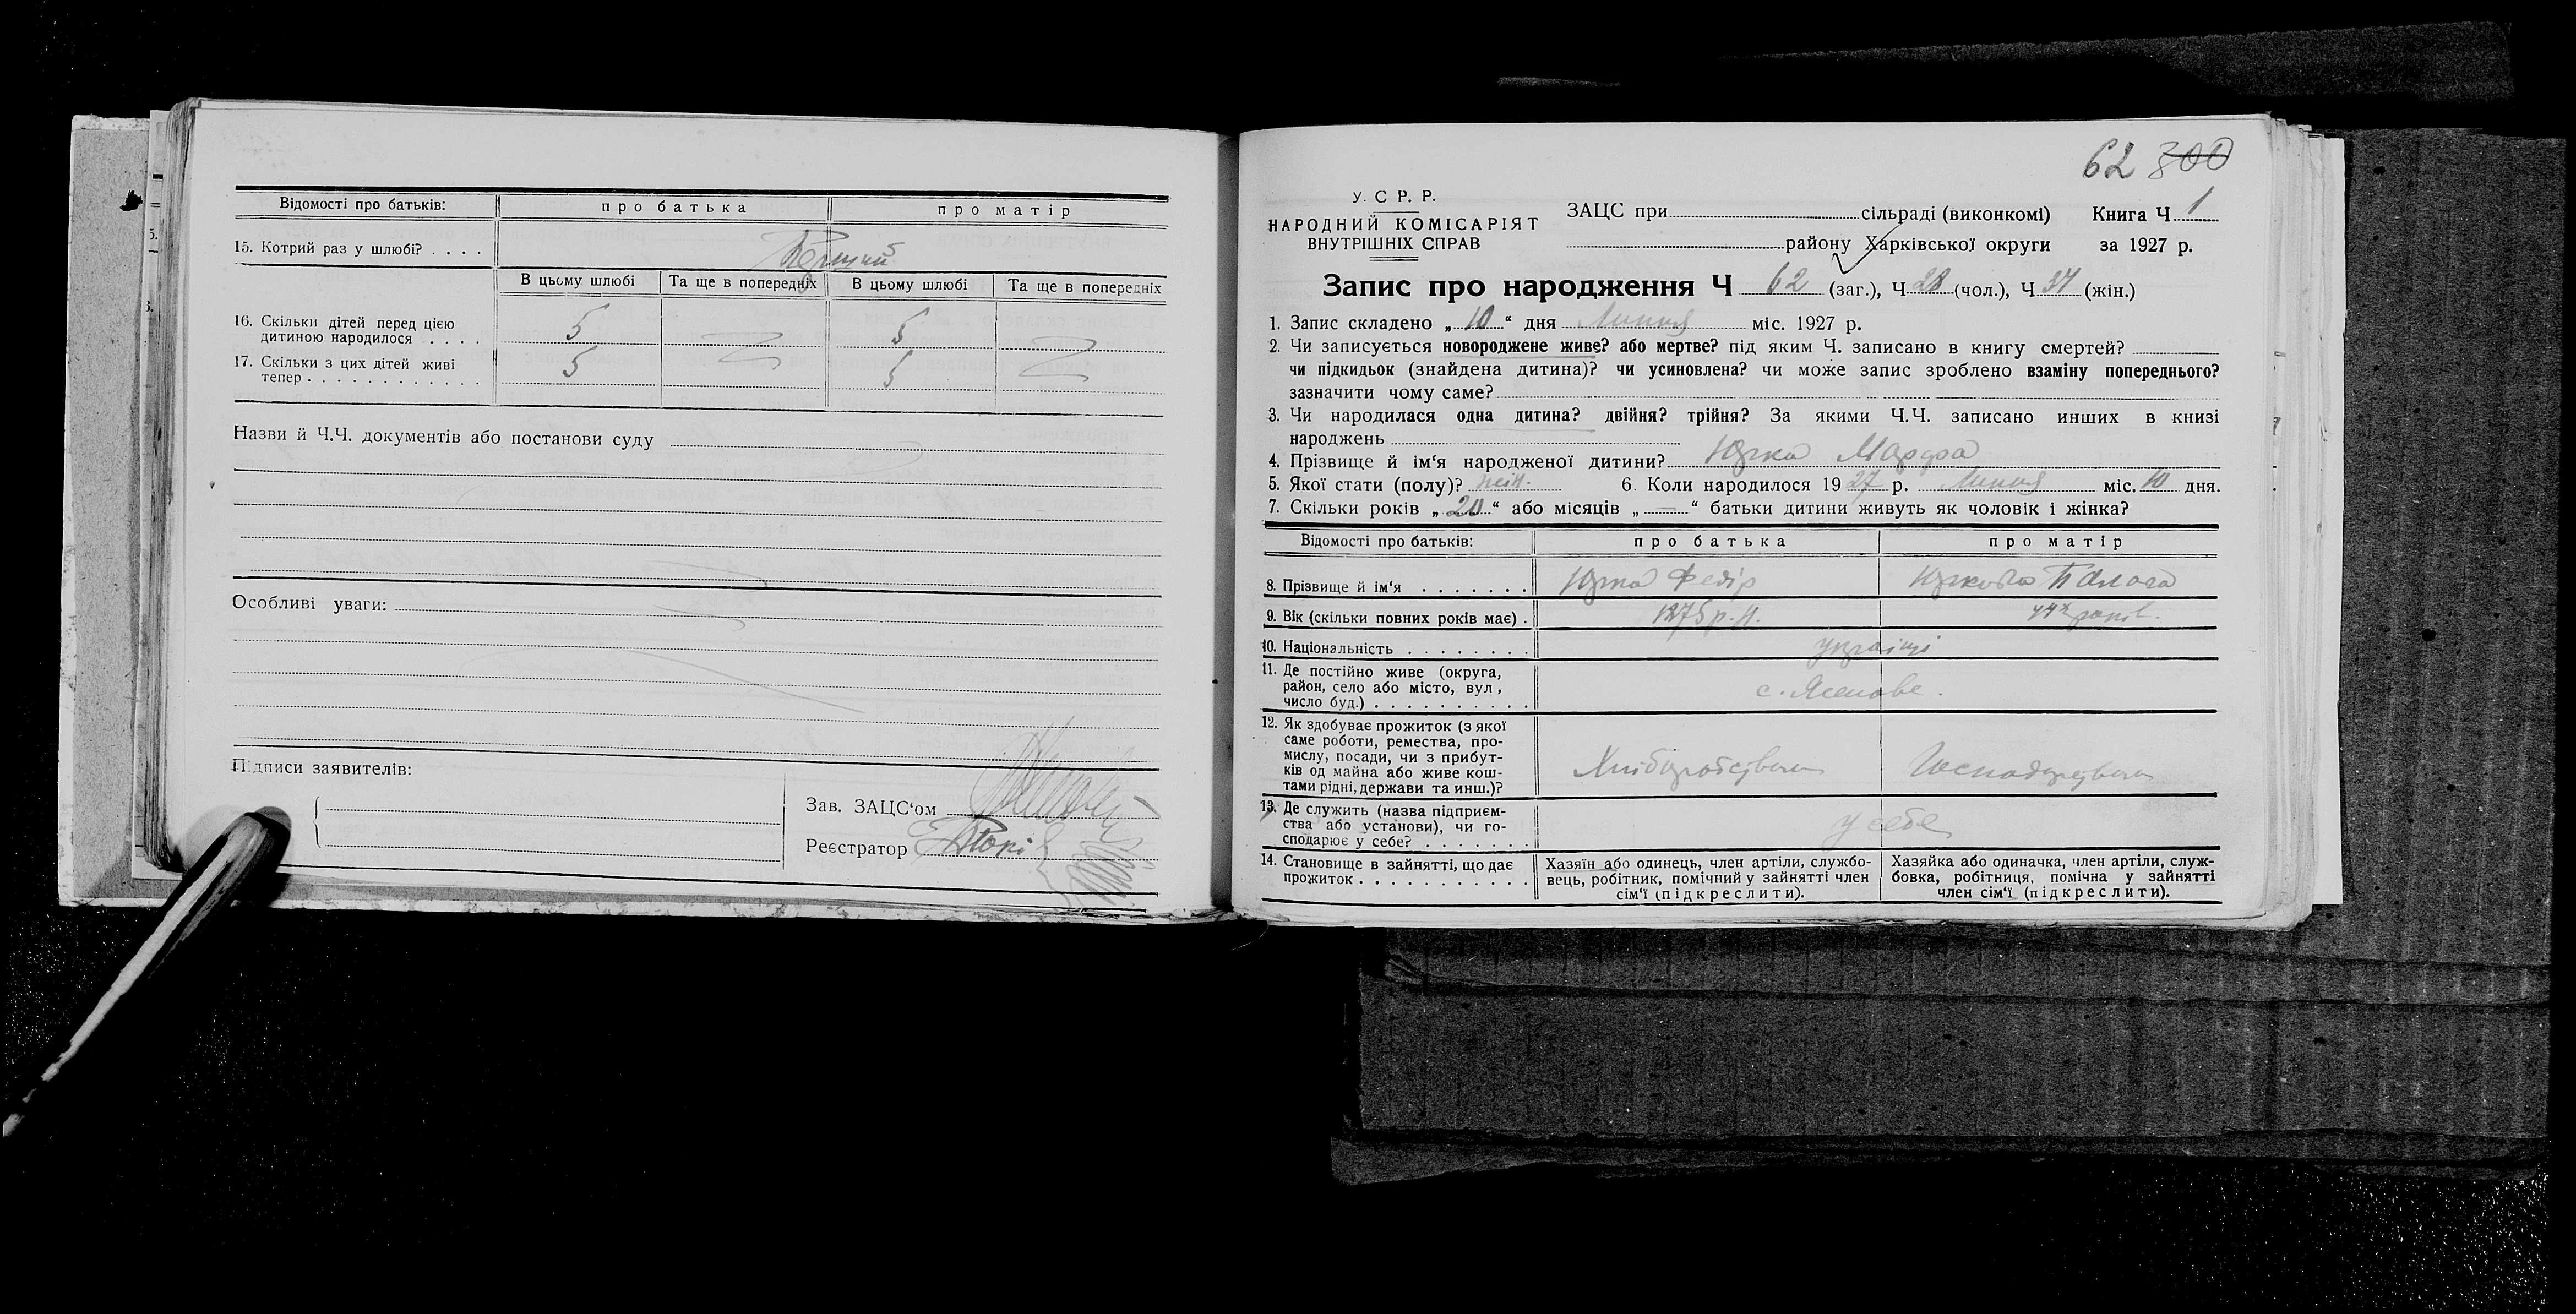 Відомості про батьків: про батька про матір
15. Котрий раз у шлюбі? . . . . Перший
В цьому шлюбі Та ще в попередніх В цьому шлюбі Та ще в попередніх
16. Скільки дітей перед цією
дитиною народилося . . . . 5 5
17. Скільки з цих дітей живі
тепер . . . . . . . . . . . . 5 5
Назви й Ч.Ч. документів або постанови суду
Особливі уваги:
Підписи заявителів:
Зав. ЗАЦС‘ом
Реєстратор
62 300
У. С Р. Р.
НАРОДНИЙ КОМІСАРІЯТ
ВНУТРІШНІХ СПРАВ
ЗАЦС при сільраді (виконкомі) Книга Ч 1
району Харківської округи за 1927 р.
Запис про народження Ч 62 (заг.), Ч 28 (чол.), Ч (жін.)
1. Запис складено „ 10 “ дня Липня міс. 1927 р.
2. Чи записується новороджене живе? або мертве? під яким Ч. записано в книгу смертей?
чи підкидьок (знайдена дитина)? чи усиновлена? чи може запис зроблено взаміну попереднього?
зазначити чому саме?
3. Чи народилася одна дитина? двійня? трійня? За якими Ч.Ч. записано инших в книзі
народжень
4. Прізвище й ім‘я народженої дитини? Марфа
5. Якої стати (полу)? жін. 6. Коли народилося 19 27 р. Липня міс. 10 дня.
7. Скільки років „ 20 “ або місяців „ — “ батьки дитини живуть як чоловік і жінка?
Відомості про батьків: про батька про матір
8. Прізвище й ім‘я . . . . . . . Федір
9. Вік (скільки повних років має) . 1875 р. н. 44х років.
10. Національність . . . . . . . . українці
11. Де постійно живе (округа,
район, село або місто, вул,
число буд.) . . . . . . . . . . с. Ясенове.
12. Як здобуває прожиток (з якої
саме роботи, ремества, про-
мислу, посади, чи з прибут-
ків од майна або живе кош-
тами рідні, держави та инш.)? Хліборобством Господарством
13. Де служить (назва підприєм-
ства або установи), чи го-
сподарює у себе? . . . . . . . у себе
14. Становище в зайнятті, що дає
прожиток . . . . . . . . . . .
Хазяїн або одинець, член артіли, службо-
вець, робітник, помічний у зайнятті член
сім‘ї (підкреслити).
Хазяйка або одиначка, член артіли, служ-
бовка, робітниця, помічна у зайнятті
член сім‘ї (підкреслити).